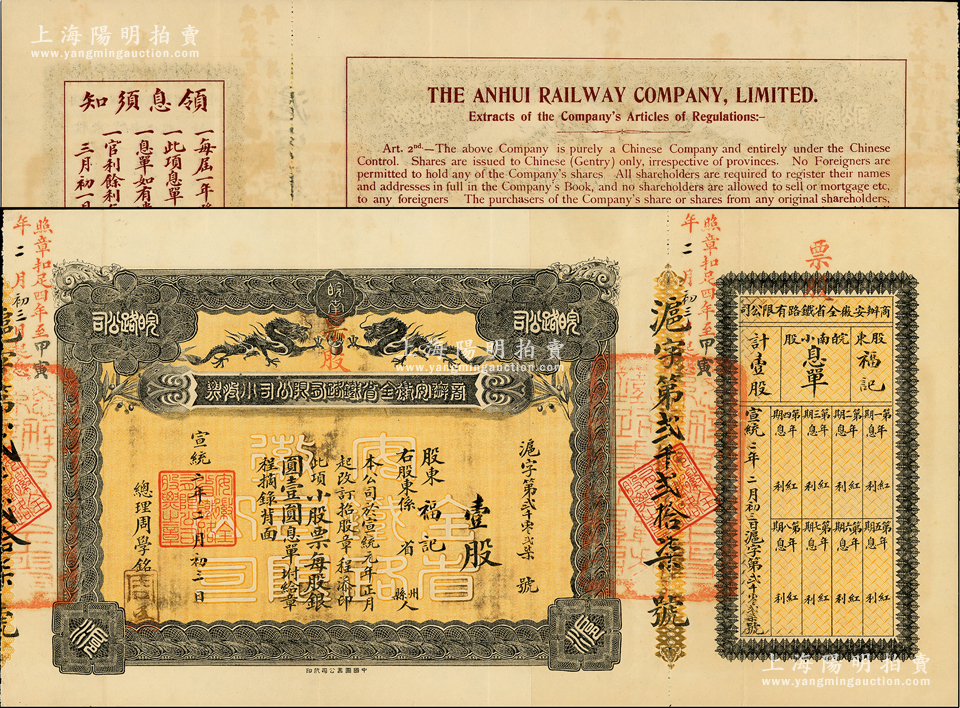 上海陽明拍賣
www.yangmingauction.com
領息須知
一每屆一年
一此項息單
一息單如有
一官利餘利
三月初一日
THE ANHUI RAILWAY COMPANY, LIMITED.
Extracts of the Company's Articles of Regulations:-
Art. 2nd.—The above Company is purely a Chinese Company and entirely under the Chinese
Control. Shares are issued to Chinese (Gentry) only, irrespective of provinces. No Foreigners are
permitted to hold any of the Company's shares All shareholders are required to register their names
and addresses in full in the Company's Book, and no shareholders are allowed to sell or mortgage etc,
to any foreigners The purchasers of the Company's share or shares from any original shareholders,
照章扣足四年至甲寅
年二月初三
皖路公司
皖路公司
商辦安徽全省鐵路有限公司小股票
滬字第弍千零弍柒號
壹股
股東福記
右股東係 省 州縣人
本公司於宣統元年正月
起改訂招股章程添印
此項小股票每股銀
圓壹圓息單附給章
程摘錄背面
宣統二年二月初三日
總理周學銘
安徽全省鐵路公司
中國圖書公司代印
照章扣足四年至甲寅
年二月初三
滬字第弍千弍拾柒號
票股
商辦安徽全省鐵路有限公司
股東福記
皖南小股
息單
計壹股
第一年期息 紅利
第二年期息 紅利
第三年期息 紅利
第四年期息 紅利
第五年期息 紅利
第六年期息 紅利
第七年期息 紅利
第八年期息 紅利
宣統二年二月初三日滬字第弍千零弍柒號
上海陽明拍賣
www.yangmingauction.com